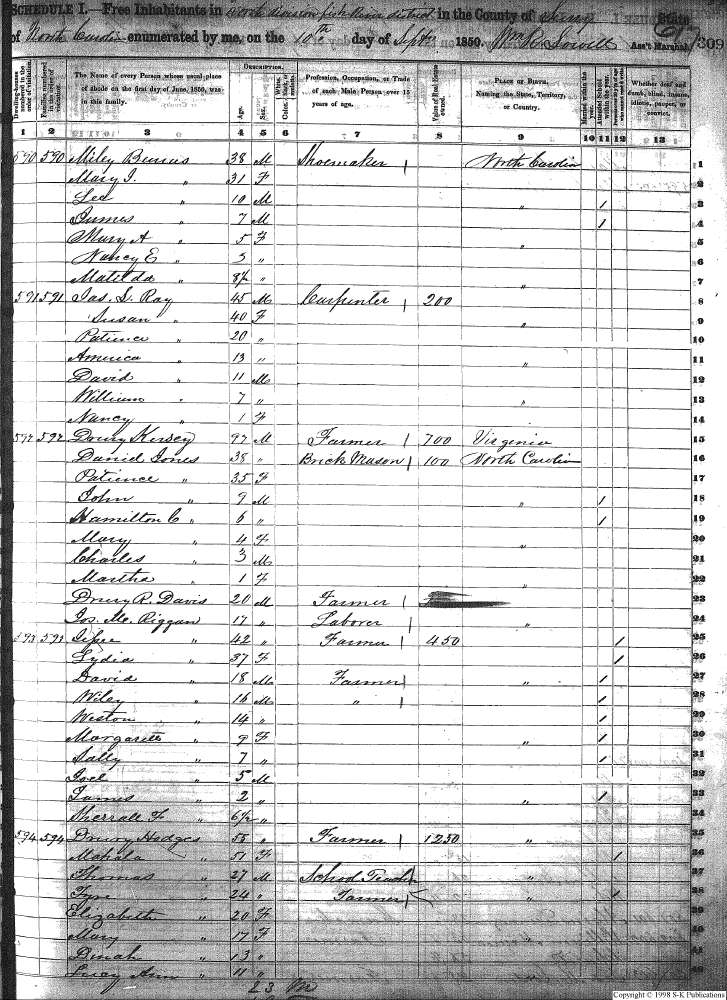 SCHEDULE I.—Free Inhabitants in North division fish River district in the County of Surry State
of North Carolin enumerated by me, on the 10th day of Septr 1850. Wm R. Ass't Marshal. 309
Dwelling-houses numbered in the order of visitation.
Families numbered in the order of visitation.
The Name of every Person whose usual place of abode on the first day of June, 1850, was in this family.
DESCRIPTION.
Age.
Sex.
Color.
Profession, Occupation, or Trade of each Male Person over 15 years of age.
Value of Real Estate owned.
PLACE OF BIRTH. Naming the State, Territory, or Country.
Married within the year.
Attended School within the year.
Whether deaf and dumb, blind, insane, idiotic, pauper, or convict.
1 2 3 4 5 6 7 8 9 10 11 12 13
590 590 Miley Burrus 38 M Shoemaker / North Carolin 1
Mary J. " 31 F
Lee " 10 M " / 3
James " 7 M / 4
Mary A " 5 F " 5
Nancy E " 3 " 6
Matilda " " " 7
591 591 Jas. S. Ray 45 M Carpenter / 200 8
Susan " 40 F " 9
Patience " 20 " 10
America " 13 " " 11
David " 11 M 12
William " 7 " " 13
Nancy " 1 F 14
592 592 Drury Kersey 97 M Farmer / 700 Virginia 15
Daniel Jones 38 " Brick Mason / 100 North Carolin 16
Patience " 35 F 17
John " 9 M " / 18
Hamilton C " 6 " / 19
Mary " 4 F " 20
Charles " 3 M 21
Martha " 1 F " 22
Drury R. Davis 20 M Farmer / 23
Jos. M. Riggan 17 " Laborer / " 24
593 593 " 42 " Farmer / 450 / 25
Lydia " 37 F / 26
David " 18 M Farmer / " / 27
Wiley " 16 M " / / 28
Weston " 14 " / 29
Margarett " 9 F " / 30
Sally " 7 " / 31
Joel " 5 M
James " 2 " / 33
Sherrall F " 6/12 " 34
594 594 Drury Hodges 55 " Farmer / 1250 " 35
Mahala " 51 F / 36
Thomas " 27 M School Teach " 37
" 24 " Farmer / " / 38
Elizabeth " 20 F 39
Mary " 17 F "
Dinah " 13 "
Lucy Ann " 11 "
23
Copyright © 1998 S-K Publications